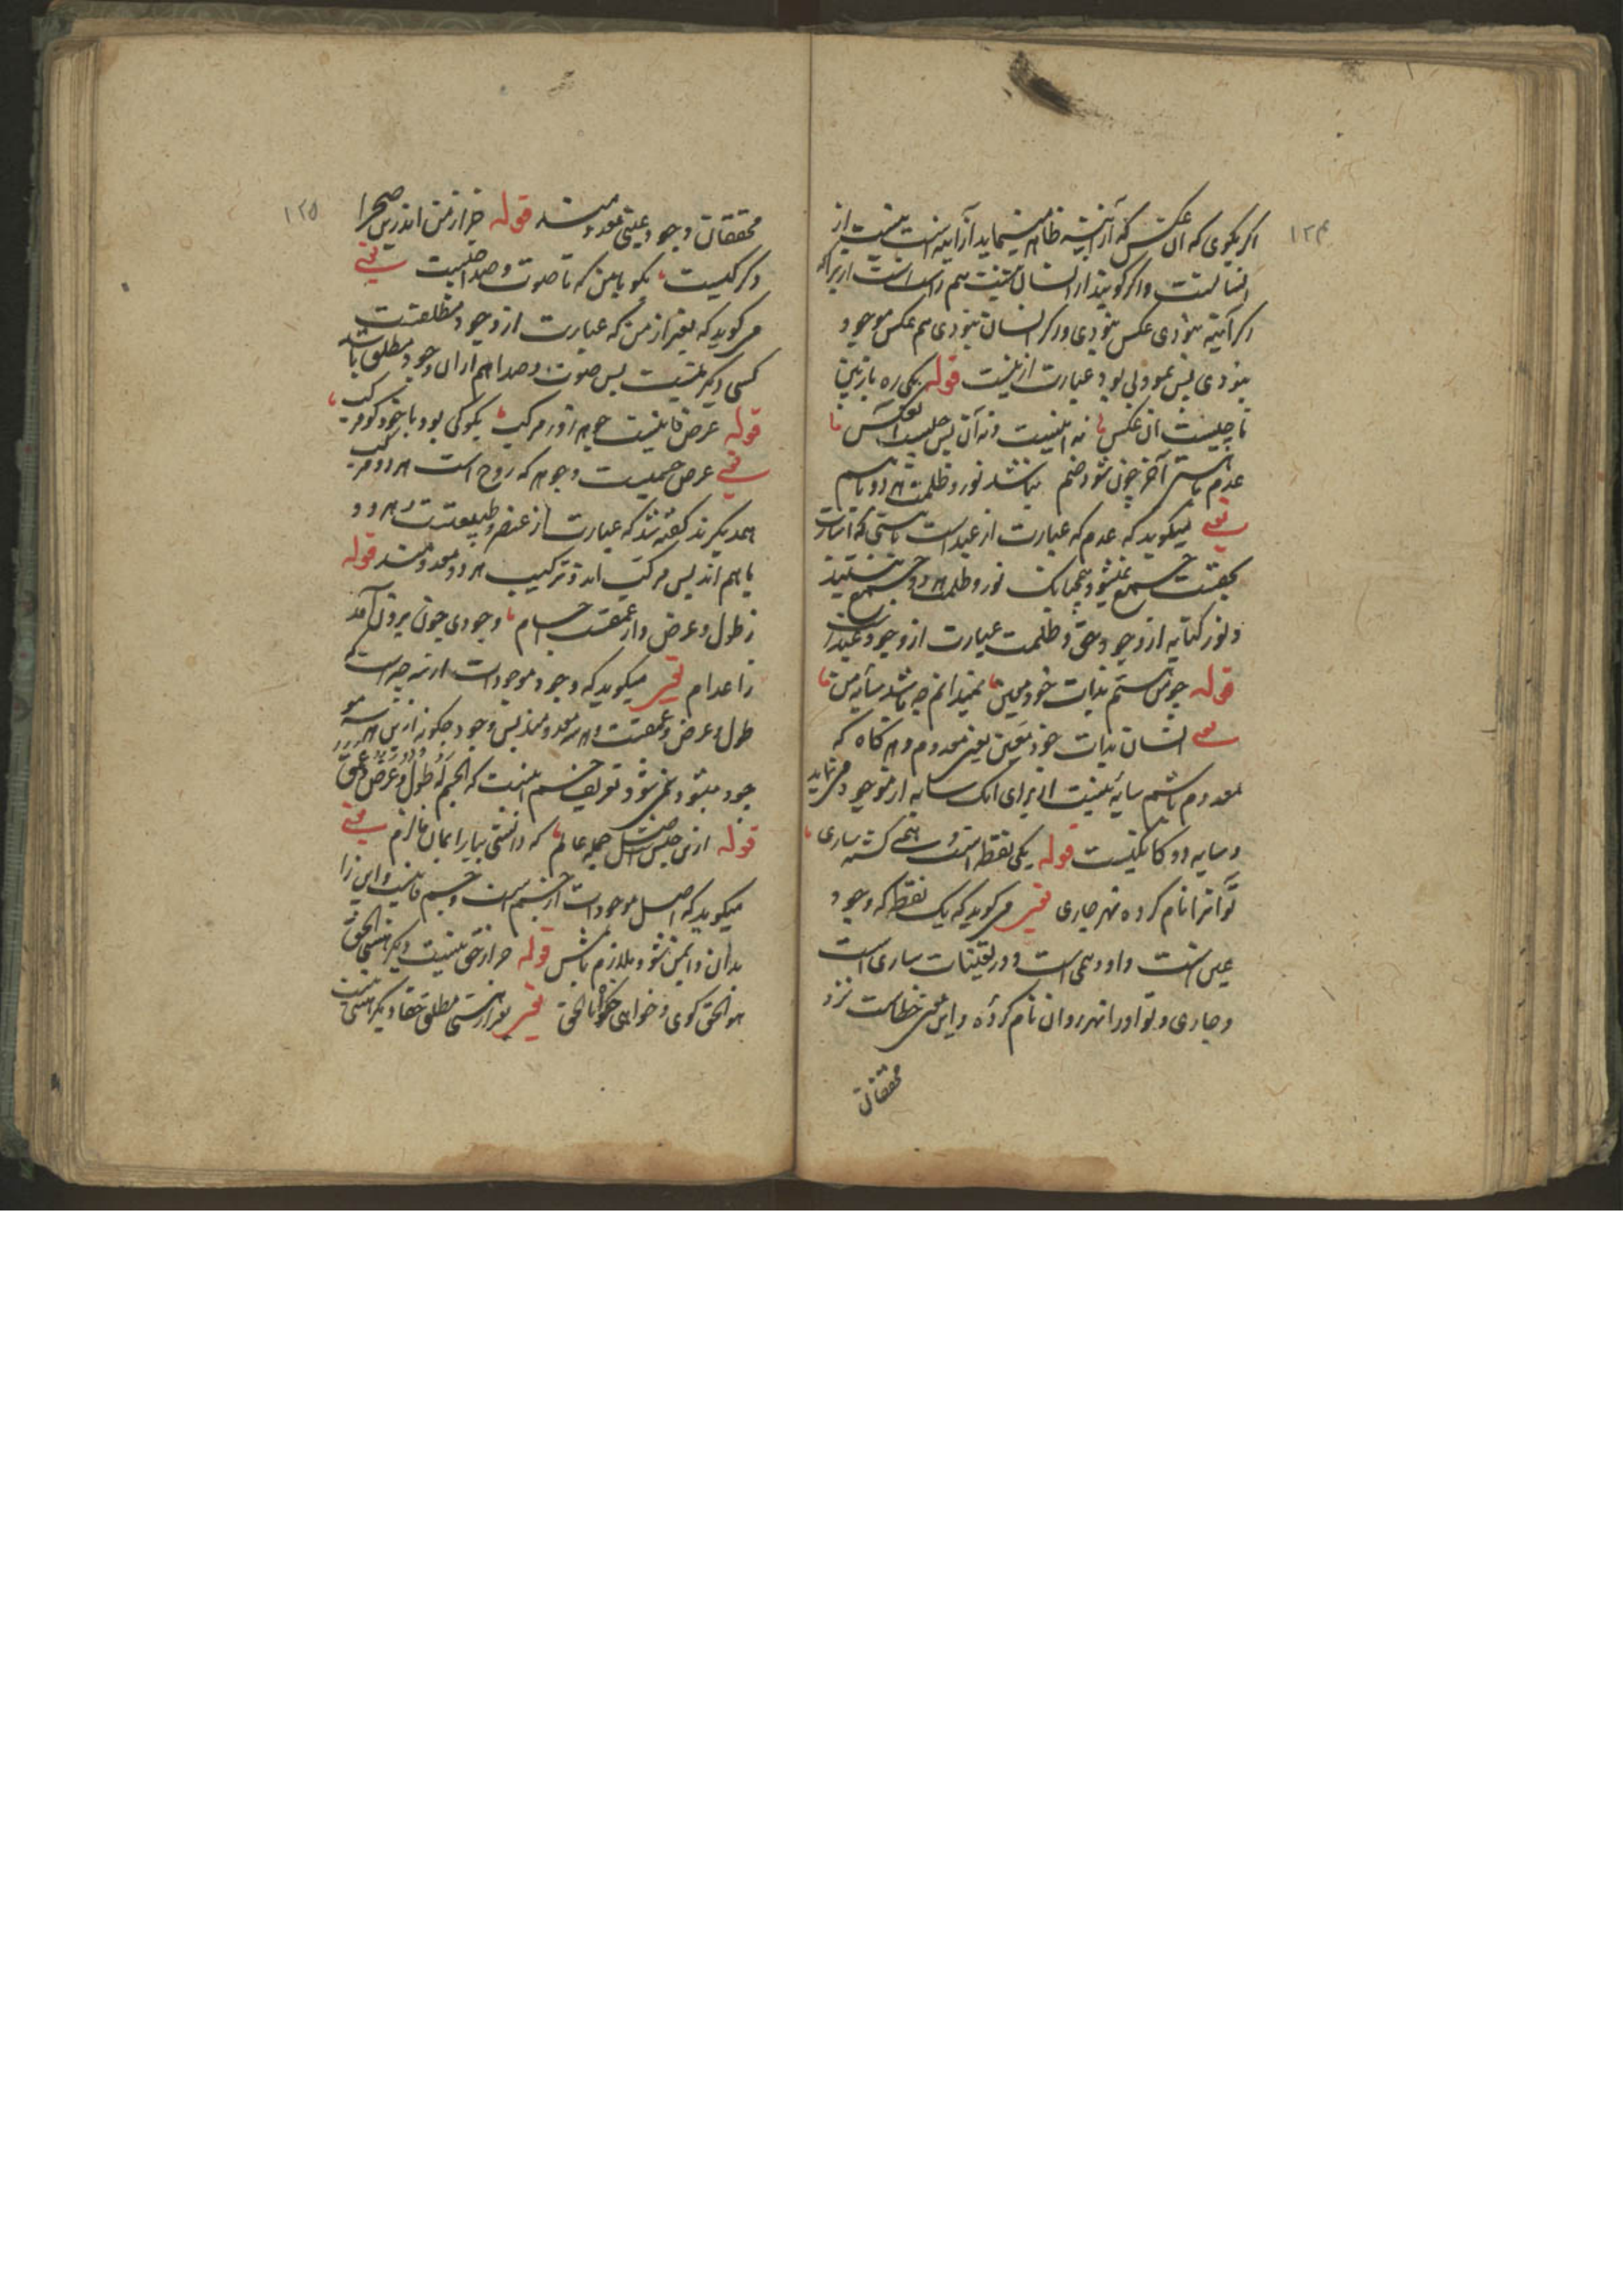 ۱۲۴
اکر بکوی که آن عکس که از آئینه ظاهر مینماید از آئینه است نیست از
انسانست و اکر کویند از انسان نیست هم راست است از برای انکه
اکر آئینه نبودی عکس نبودی و اکر انسان نبودی هم عکس موجود
نبودی پس نمودی بود عبارت از نیست قوله یکی ره باز بین
تا چیست آن عکس نه اینست و نه آن پس چیست آن عکس
عدم با هستی آخر چون شود ضم نباشد نور و ظلمت هر دو با هم
یعنی میکوید که عدم که عبارت از عبد است با هستی که اشارت
بحقست جمع نمیشود همچنانک نور و ظلمت هر دو جمع نیستند
و نور کنایه از وجود حق و ظلمت عبارت از وجود عبد است
قوله چو من هستم بذات خود معین نمیدانم چه باشد سایه من
یعنی انسان بذات خود معین یعنی معدوم و هرکاه که
معدوم باشم سایه نیست از برای انک سایه از موجود می نماید
و سایه دوکانکیست قوله یکی نقطه است وهمی کشته ساری
تو آنرا نام کرده نهر جاری یعنی می کوید که یک نقطه که وجود
عین است و او وهمی است و در تعینات ساری است
و جاری و تو او را نهر روان نام کرده و این معنی خطاست نزد
محققان
۱۲۵
محققان وجود عینی معدومند قوله جز از من اندرین صحرا
دکر کیست بکو با من که تا صوت و صدا چیست یعنی
می کوید که بغیر از من که عبارت از وجود مطلقست
کسی دیکر نیست پس صوت و صدا هم از آن وجود مطلق باشد
قوله عرض فانیست جوهر زو مرکب بکو کی بود یا خود کو مرکب
یعنی عرض جسمیست و جوهر که روح است هر دو مرکب
همدیکرند کفته شد که عبارت از عنصر و طبیعتست هر دو
با هم اند پس مرکب اند و ترکیب هر دو معدومند قوله
ز طول و عرض و از عمقست اجسام وجودی چون برون آمد
ز اعدام یعنی میکوید که وجود موجودات از سه چیز است که
طول و عرض و عمقست و هر سه معدومند پس وجود چکونه از این هر سه مو
جود میشود نمی شود تعریف جسم اینست که الجسم له طول و عرض و عمق
قوله ازین جنس است اصل جمله عالم که دانستی بیار ایمان فالزم یعنی
میکوید که اصل موجودات از جسم است و جسم فانیست و این را
بدان و ایمن شو و ملازم باش قوله جز از حق نیست دیکر هستی الحق
هو الحق کوی و خواهی کو انا الحق یعنی بغیر از هستی مطلق حقا دیکر هستی نیست